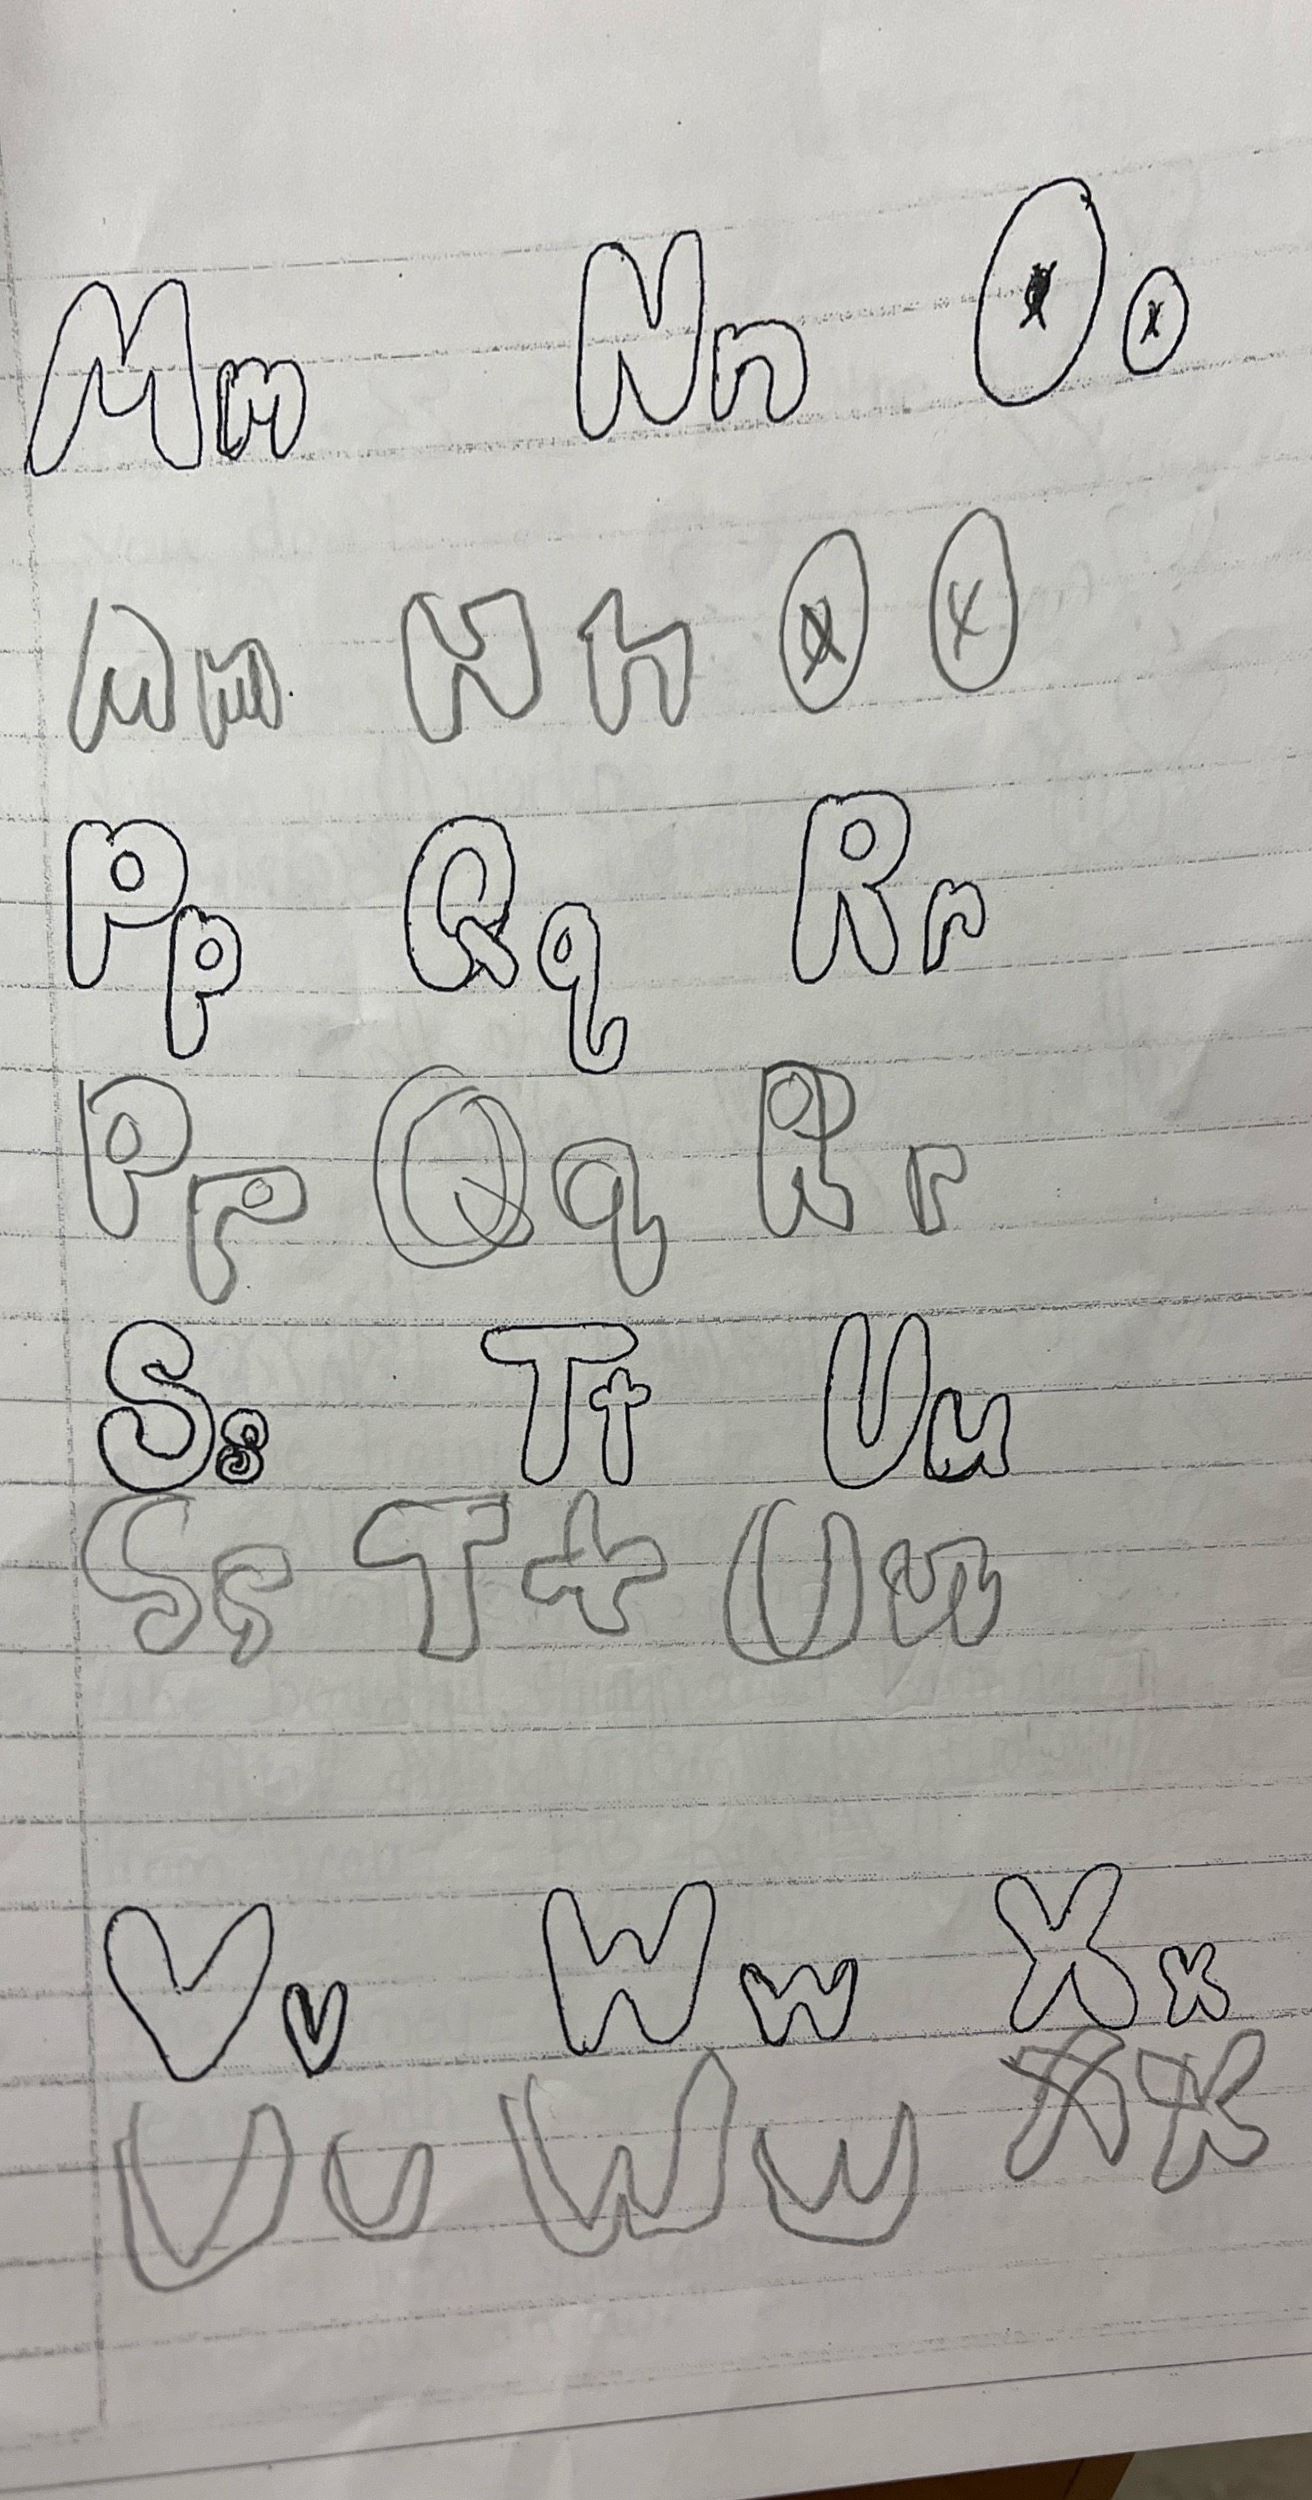 Mm Nn Oo
Mm Nn Oo
Pp Qq Rr
Pp Qq Rr
Ss Tt Uu
Ss Tt Uu
Vv Ww Xx
Vv Ww Xx